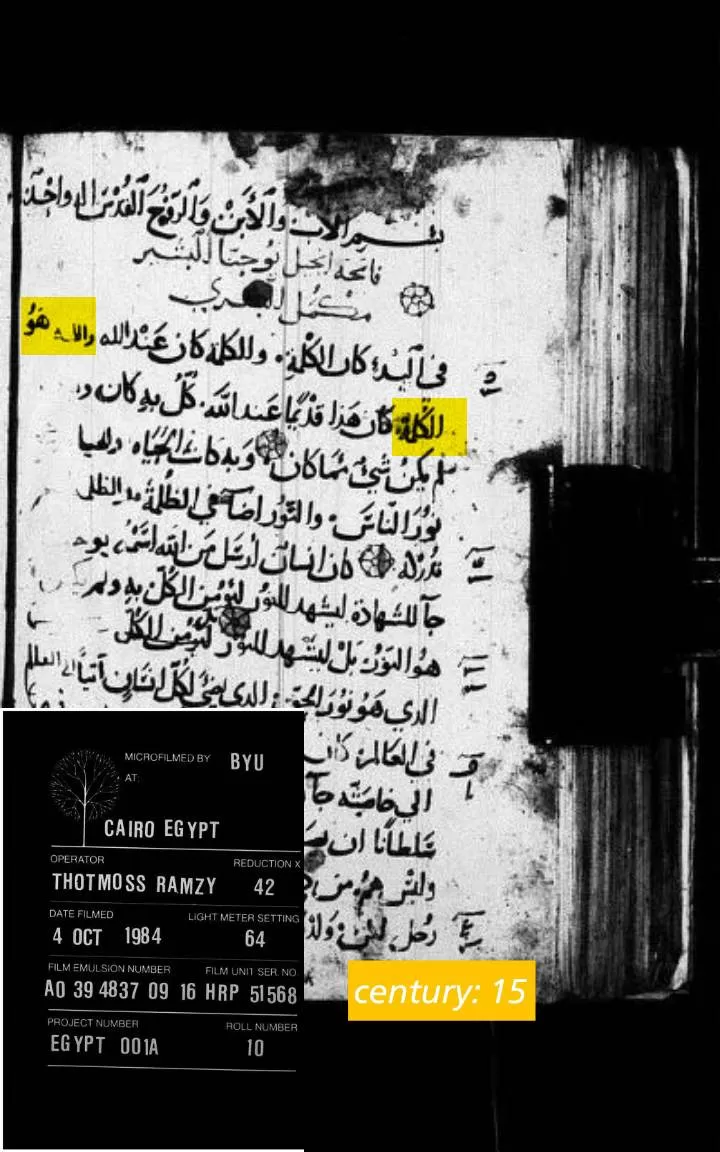 بشــم الاب والابن والروح القدس الاه واحد
فاتحة انجيل يوحنا البشير
مكمل البشري
في البدء كان الكلمة. والكلمة كان عند الله والله هو
الكلمة كان هذا قديما عند الله. كل به كان و
لم يكن شيء مما كان وبه كانت الحياه والحياه
نور الناس. والنور اضا في الظلمة والظلمة
كان انسان ارسل من الله اسمه يوحنا
جا للشهادة ليشهد للنور ليومن الكل به ولم
هو النور بل ليشهد للنور ليومن الكل
الدي هو نور الحق الدي يضي لكل انسان اتيا الى العالم
في العالم كان
الي خاصته جا
سلطانا ان
MICROFILMED BY BYU
AT:
CAIRO EGYPT
OPERATOR REDUCTION X
THOTMOSS RAMZY 42
DATE FILMED LIGHT METER SETTING
4 OCT 1984 64
FILM EMULSION NUMBER FILM UNIT SER. NO.
A0 39 4837 09 16 HRP 51568
PROJECT NUMBER ROLL NUMBER
EGYPT 001A 10
century: 15